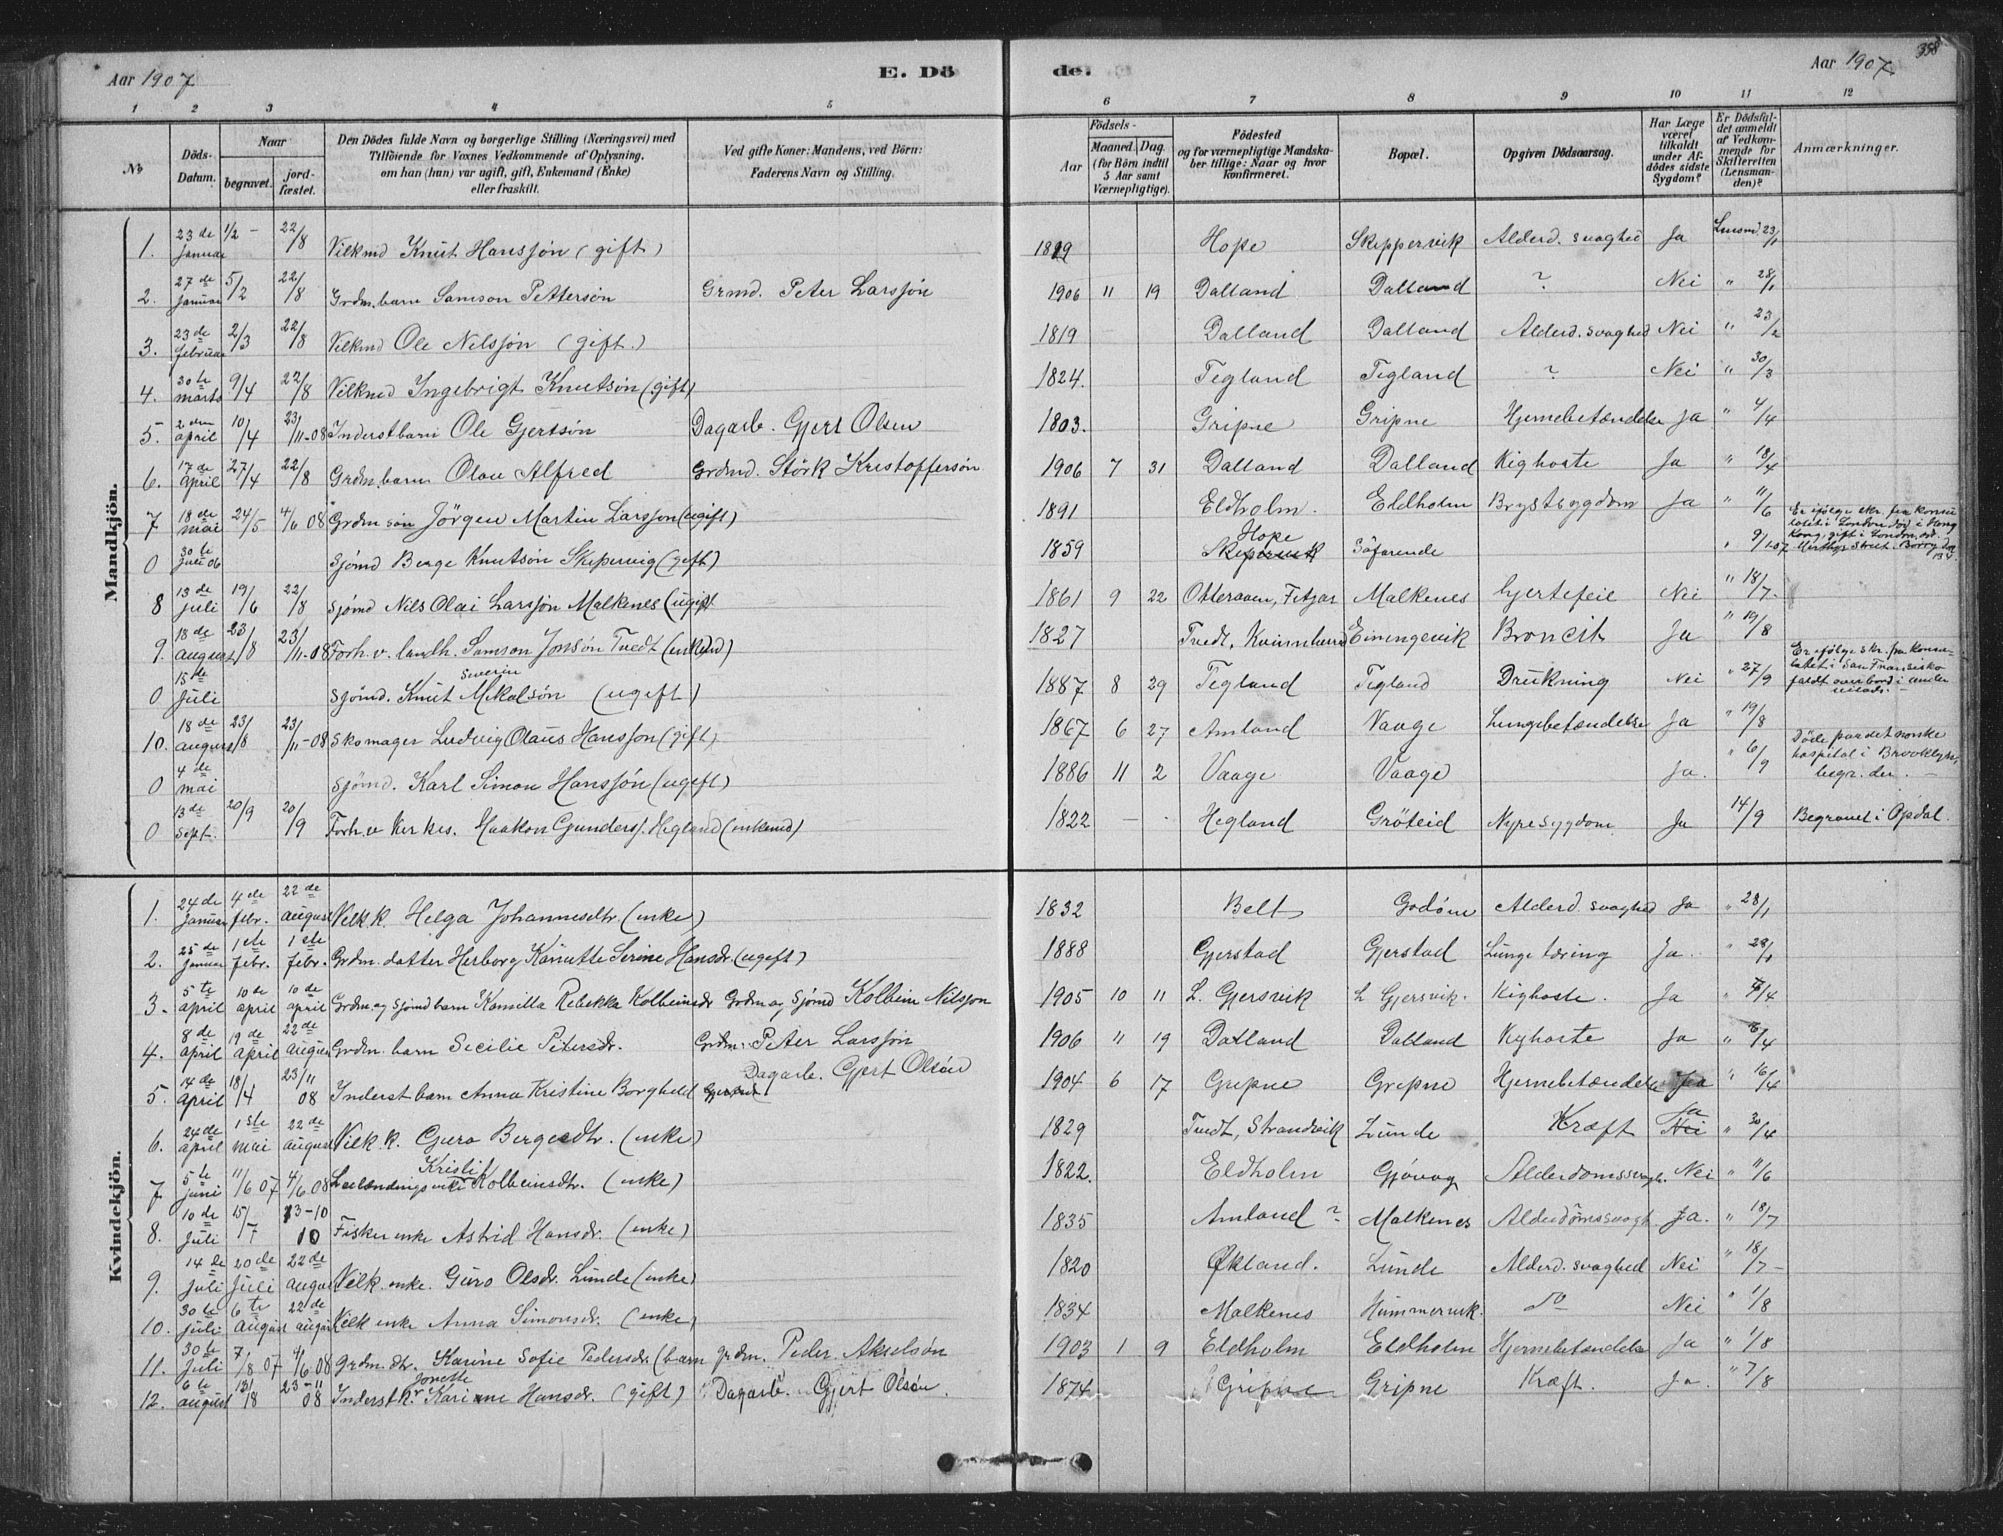 Aar 1907 E. Dö
de. Aar 1907 358
1 2 3 4 5 6 7 8 9 10 11 12
No Döds-Datum. Naar begravet. jordfæstet. Den Dödes fulde Navn og borgerlige Stilling (Næringsvei) med Tilföiende for Voxnes Vedkommende af Oplysning, om han (hun) var ugift, gift, Enkemand (Enke) eller fraskilt. Ved gifte Koner: Mandens, ved Börn: Faderens Navn og Stilling. Födsels- Aar Maaned. Dag. (for Börn indtil 5 Aar samt Værnepligtige). Födested og for værnepligtige Mandskaber tillige: Naar og hvor konfirmeret. Bopæl. Opgiven Dödsaarsag. Har Læge været tilkaldt under Afdödes sidste Sygdom? Er Dödsfaldet anmeldt af Vedkommende for Skifteretten (Lensmanden)? Anmærkninger.
Mandkjön.
1. 23de Januar 1/2 - 22/8 Vilkmd Knut Hansjøn (gift) 1819 Hope Skippervik Alderd. svaghed Ja Lensmd 23/1
2. 27de Januar 5/2 22/8 Grdm.barn Samson Pettersøn Grmd. Peter Larsjøn 1906 11 19 Dalland Dalland ? Nei " 28/1
3. 23de februar 2/3 22/8 Vilkmd Ole Nilsjøn (gift.) 1819 Dalland Dalland Alderd. svaghed Nei " 23/2
4. 30te marts 9/4 22/8 Vilkmd Ingebrigt Knutsøn (gift) 1824. Tegland Tegland ? Nei " 30/3
5. 2den april 10/4 23/11-08 Inderstbarn Ole Gjertsøn Dagarb. Gjert Olsen 1803. Gripne Gripne Hjernebetændelse Ja " 4/4
6. 17de April 27/4 22/8 Grdm.barn Olav Alfred Grdmd. Störk Kristoffersøn 1906 7 31 Dalland Dalland Kighoste Ja " 18/4
7 18de mai 24/5 4/6 08 Grdm søn Jørgen Martin Larsjøn (ugift) 1891 Eldholm. Eldholm Brystsygdom Ja " 11/6
0 30te Juli 06 Sjømd Berge Knutsøn Skipervig (gift) 1859 Hope Skipervik Søfarende " 9/1 07 Er ifølge skr. fra konsulatet i London død i Hong Kong, gift i London
8 13de juli 19/6 22/8 Sjømd Nils Olai Larsjøn Malkenes (ugift 1861 9 22 Otteraaen, Fitjar Malkenes hjertefeil Nei " 18/7.
9. 18de august 23/8 23/11-08 Forh.v. landh. Samson Jonsøn Tvedt (enkemd) 1827 Tvedt, Kvinnherred Einingevik Broncit Ja " 19/8
0 15de Juli Sjømd. Knut Severin Mikalsøn (ugift) 1887 8 29 Tegland Tegland Drukning Nei " 27/9 Er ifølge skr. fra konsulatet i San Fransisko faldt overbord
10. 18de august 23/8 23/11-08 Skomager Ludvig Olaus Hansjøn (gift) 1867 6 27 Amland Vaage Lungebetændelse Ja " 19/8
0 4de mai Sjømd. Karl Simon Hansjøn (ugift) 1886 11 2 Vaage Vaage Ja. " 6/9 Døde paa det norske hospital i Brooklyn, begr. der. —
0 13de Sept. 20/9 20/9 Forh.v Kirkes. Haakon Gunders. Hegland (enkemd) 1822 — - Hegland Grøteid Nyresygdom Ja 14/9 Begravet i Opdal.
Kvindekjön.
1. 24de Januar 4de febr. 22de august Vilk.k. Helga Johannesdtr (enke) 1832 Belt Godøne Alderd svaghed Ja " 28/1
2. 25de Januar 1ste febr. 1ste febr. Grdm. datter Herborg Kanutte Serine Hansdr. (ugift) 1888 Gjerstad Gjerstad Lunge tæring Ja. " 28/1
3. 5te april 10de april 10de april Grdm. og Sjømd barn Kamilla Rebekka Kolbeinsdr Grdm og Sjømd Kolbein Nilsjon 1905 10 11 L. Gjersvik L Gjersvik. Kighoste. Ja " 8/4
4. 8de April 19de April 22de August Grdm. barn Secilie Petersdr. Grdm. Peter Larsjøn 1906 11 19 Dalland Dalland Kighoste Ja " 8/4
5. 14de April 18/4 23/11 08 Inderst barn Anna Kristine Borghild Gjertsdt Dagarb. Gjert Olsøn 1904 6 17 Gripne Gripne Hjernebetændelse Ja " 16/4
6. 24de April 1ste mai 22de august Vilk.k. Guro Bergesdtr. (enke) 1829 Tvedt, Strandvik Lunde Kræft Nei Ja " 30/4
7 5te Juni 11/6 07 4/6 08 Leilændingsenke Kristi Kolbeinsdtr. (enke) 1822. Eldholm Gjøvag Alderdomssvagh. Nei " 11/6
8. 10de Juli 15/7 13-10 10 Fisker enke Astrid Hansdr. (enke) 1835 Amland ? Malkenes Alderdomssvagh Ja. " 18/7
9. 14de Juli 20de Juli 22de august Vilk. enke. Guro Olsdr. Lunde (enke) 1820 Økland. Lunde Alderd. svaghed Nei " 18/7 -
10. 30te Juli 6te August 22de august Vilk enke Anna Simonsdr. (enke) 1834 Malkenes Hummervik. do Nei " 1/8
11. 30te Juli 7/8 07 4/6 08 Grdm. dtr. Karine Sofie Pedersdr. (barn grdm. Peder Akselsøn 1903 1 9 Eldholm Eldholm Hjernebetændelse Ja " 1/8
12. 6te august 13/8 23-11 08 Inderst k. Jonette Karianne Hansdr. (gift) Dagarb. Gjert Olsøn. 1874 Gripne Gripne Kræft. Ja. " 7/8